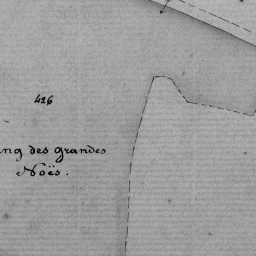 426
ng des grandes
Noës.